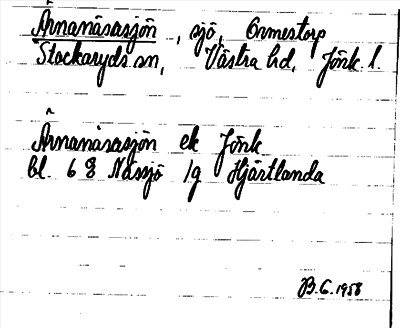 Årnanäsasjön, sjö, Ormestorp
Stockaryds sn, Västra hd, Jönk. l.
Årnanäsasjön ek Jönk
bl. 6 8 Nässjö 1g Hjärtlanda
B.G. 1958